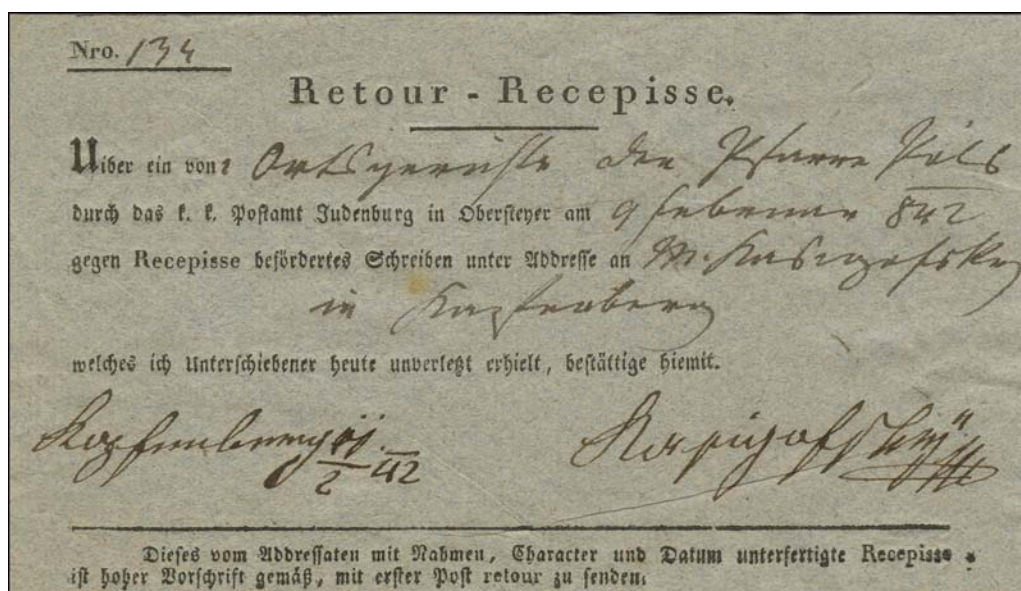 Nro. 134
Retour - Recepisse.
Uiber ein von Ortsgerichte der Pfarre Pöls
durch das k. k. Postamt Judenburg in Obersteyer am 9 Februar 842
gegen Recepisse befördertes Schreiben unter Addresse an
in Kapfenberg
welches ich Unterschiebener heute unverletzt erhielt, bestättige hiemit.
Kapfenberg 11/2 42
Dieses vom Addressaten mit Nahmen, Character und Datum unterfertigte Recepisse
ist hoher Vorschrift gemäß, mit erster Post retour zu senden.